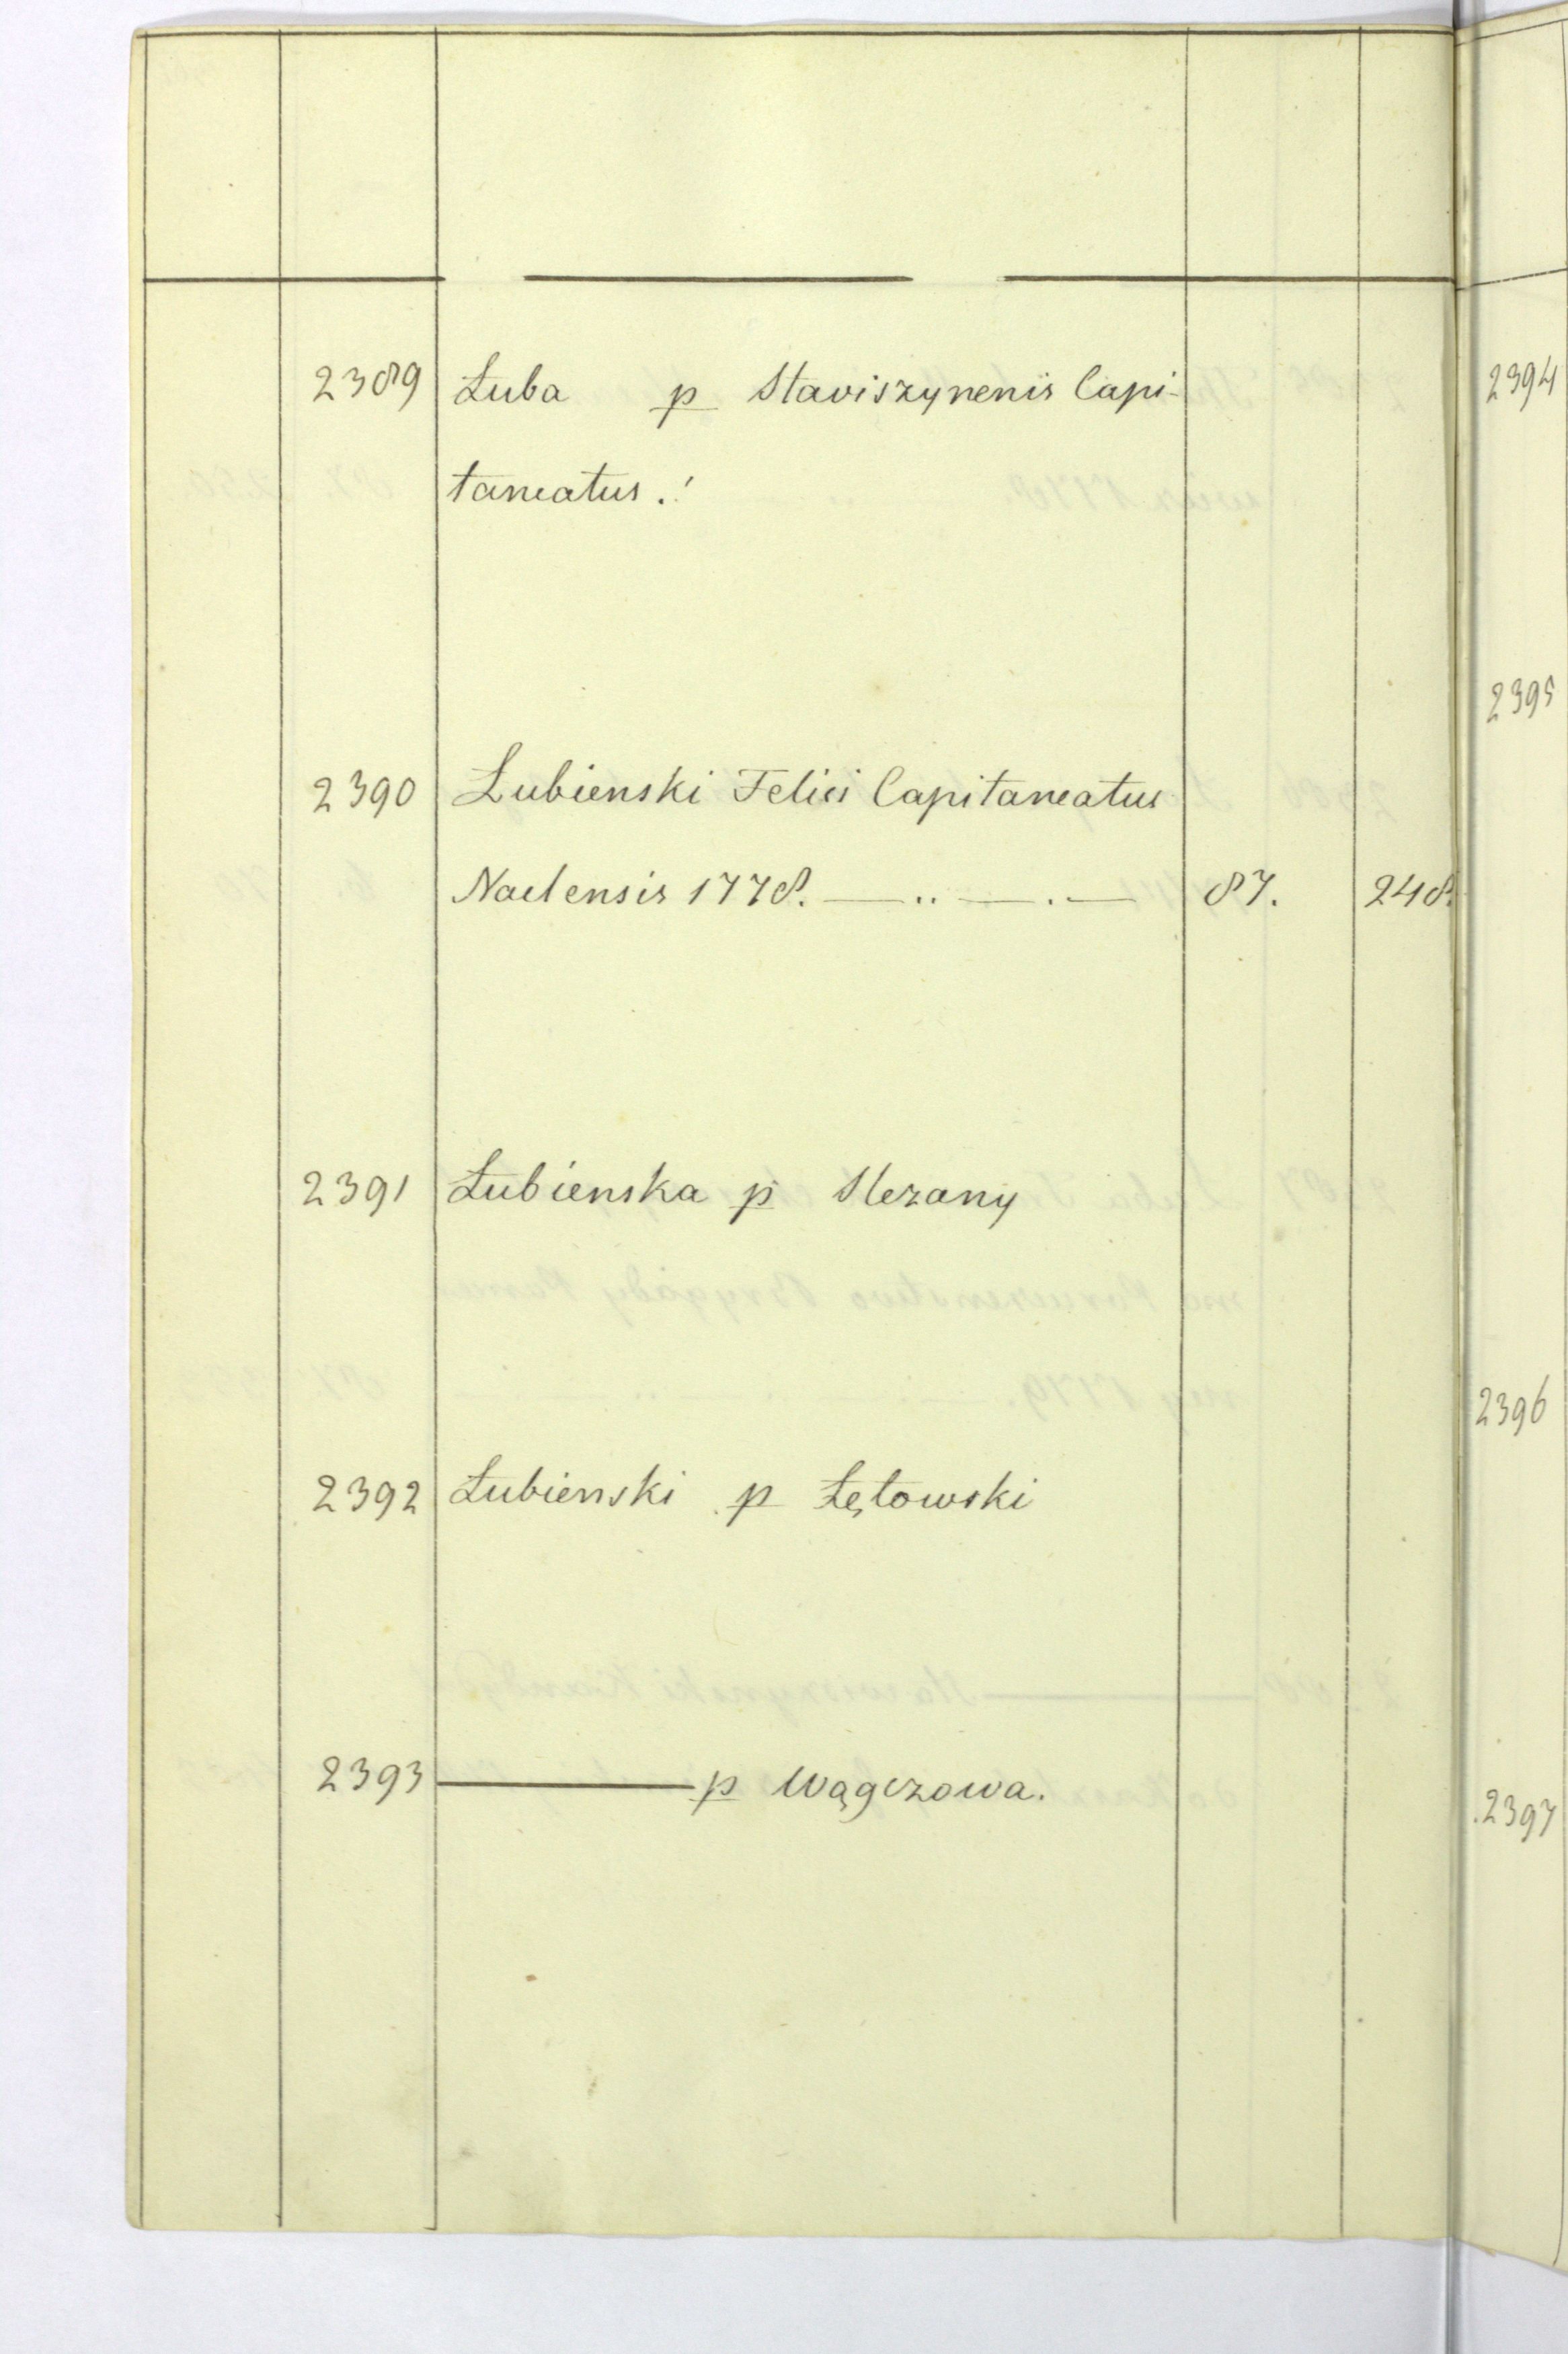 2389 Łuba p Staviszynenis Capi-
taneatus.!
2390 Łubienski Felici Capitaneatus
Naelensis 1778. — .. — . — 87. 248.
2391 Łubienska p Slezany
2392 Łubienski p Łętowski
2393 ——— p Wągczowa.
2394
2395
2396
2397